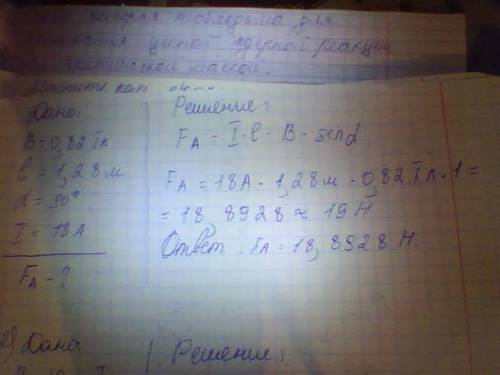 которая необходима для
цепной ядерной реакции
массой.
Дано:
B = 0,82 Тл
l = 1,28 м
α = 90°
I = 18 А
F_A - ?
Решение:
F_A = I · l · B · sin α
F_A = 18 А · 1,28 м · 0,82 Тл · 1 =
= 18,8928 ≈ 19 Н
Ответ: F_A = 18,8928 Н.
2) Дано:
Решение: